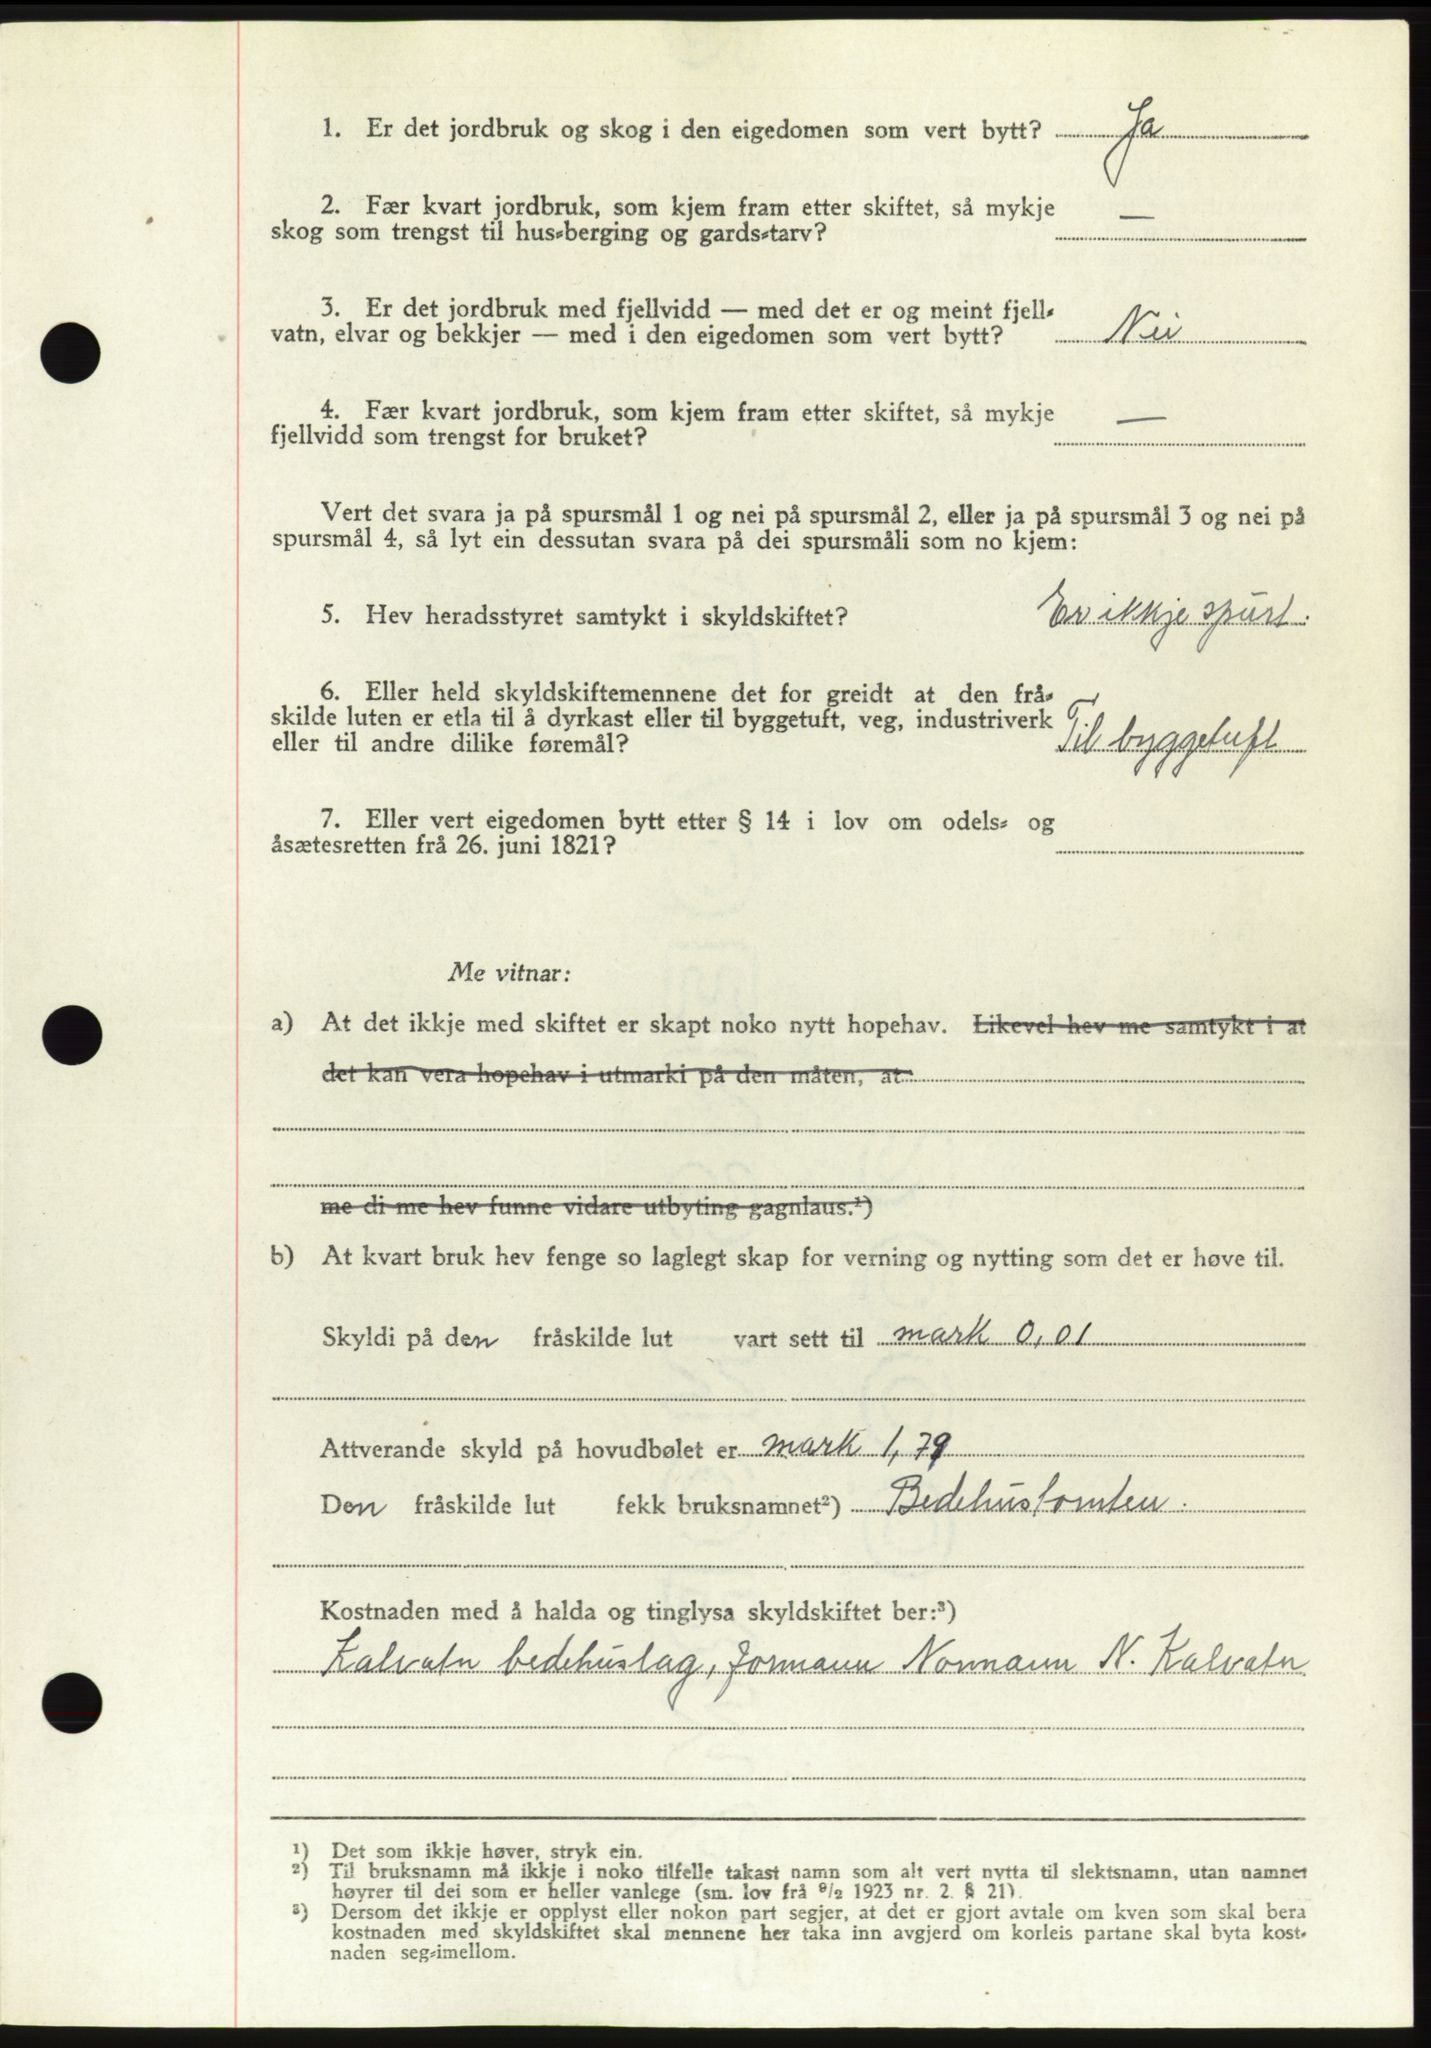 1. Er det jordbruk og skog i den eigedomen som vert bytt? Ja
2. Fær kvart jordbruk, som kjem fram etter skiftet, så mykje —
skog som trengst til hus-berging og gards-tarv?
3. Er det jordbruk med fjellvidd — med det er og meint fjell-
vatn, elvar og bekkjer — med i den eigedomen som vert bytt? Nei
4. Fær kvart jordbruk, som kjem fram etter skiftet, så mykje —
fjellvidd som trengst for bruket?
Vert det svara ja på spursmål 1 og nei på spursmål 2, eller ja på spursmål 3 og nei på
spursmål 4, så lyt ein dessutan svara på dei spursmåli som no kjem:
5. Hev heradsstyret samtykt i skyldskiftet? Er ikkje spurt.
6. Eller held skyldskiftemennene det for greidt at den frå-
skilde luten er etla til å dyrkast eller til byggetuft, veg, industriverk Til byggetuft
eller til andre dilike føremål?
7. Eller vert eigedomen bytt etter § 14 i lov om odels- og
åsætesretten frå 26. juni 1821?
Me vitnar:
a) At det ikkje med skiftet er skapt noko nytt hopehav. Likevel hev me samtykt i at
det kan vera hopehav i utmarki på den måten, at
me di me hev funne vidare utbyting gagnlaus.¹)
b) At kvart bruk hev fenge so laglegt skap for verning og nytting som det er høve til.
Skyldi på den fråskilde lut vart sett til mark 0,01
Attverande skyld på hovudbølet er mark 1,79
Den fråskilde lut fekk bruksnamnet²) Bedehustomten.
Kostnaden med å halda og tinglysa skyldskiftet ber:³)
Kalvatn bedehuslag, formann Normann N. Kalvatn
¹) Det som ikkje høver, stryk ein.
²) Til bruksnamn må ikkje i noko tilfelle takast namn som alt vert nytta til slektsnamn, utan namnet
høyrer til dei som er heller vanlege (sm. lov frå 9/2 1923 nr. 2. § 21).
³) Dersom det ikkje er opplyst eller nokon part segjer, at det er gjort avtale om kven som skal bera
kostnaden med skyldskiftet skal mennene her taka inn avgjerd om korleis partane skal byta kost-
naden seg-imellom.